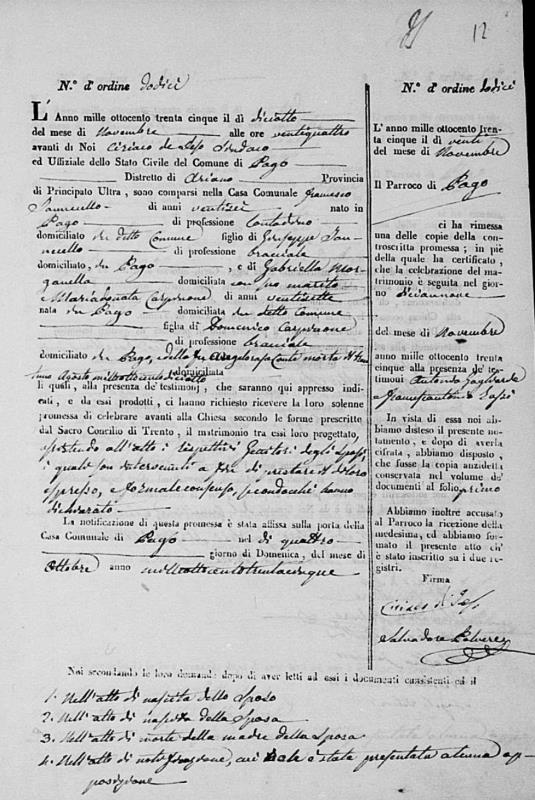 12
N.° d'ordine dodici
L'Anno mille ottocento trenta cinque il dì diciotto
del mese di Novembre alle ore ventiquattro
avanti di Noi Ciriaco de Sindaco
ed Uffiziale dello Stato Civile del Comune di Pago
Distretto di Ariano Provincia
di Principato Ultra, sono comparsi nella Casa Comunale Francesco
Iannicello di anni ventisei nato in
Pago di professione Contadino
domiciliato in detto Comune figlio di Giuseppe Ian-
nicello di professione bracciale
domiciliato, in Pago, e di Gabriella Mor-
ganella domiciliata con suo marito
e Maria Donata di anni ventisette
nata in Pago domiciliata in detto Comune
figlia di Domenico
di professione bracciale
domiciliato in Pago, e della fu Conte morta
Agosto milleottocentodiciotto domiciliata
li quali, alla presenza de' testimonj, che saranno qui appresso indi-
cati, e da essi prodotti, ci hanno richiesto ricevere la loro solenne
promessa di celebrare avanti alla Chiesa secondo le forme prescritte
dal Sacro Concilio di Trento, il matrimonio tra essi loro progettato,
assistendo all'atto i rispettivi Genitori degli Sposi
i quali son intervenuti a fin di prestare il di loro
espresso, e formale consenso, secondocchè hanno
dichiarato
La notificazione di questa promessa è stata affissa sulla porta della
Casa Comunale di Pago nel dì quattro
giorno di Domenica, del mese di
Ottobre anno milleottocentotrentacinque
N.° d'ordine dodici
L'anno mille ottocento tren-
ta cinque il dì venti
del mese di Novembre
Il Parroco di Pago
ci ha rimessa
una delle copie della con-
troscritta promessa; in piè
della quale ha certificato,
che la celebrazione del ma-
trimonio è seguita nel giorno
diciannove
del mese di Novembre
anno mille ottocento trenta
cinque alla presenza de' te-
stimoni Antonio
e Francesantonio
In vista di essa noi ab-
biamo disteso il presente no-
tamento, e dopo di averla
cifrata, abbiamo disposto,
che fusse la copia anzidetta
conservata nel volume de'
documenti al folio primo
Abbiamo inoltre accusato
al Parroco la ricezione della
medesima, ed abbiamo for-
mato il presente atto ch'
è stato inscritto su i due re-
gistri.
Firma
Ciriaco de
Salvadore Polvere
Noi secondando le loro domande dopo di aver letti ad essi i documenti consistenti ed il
1. Nell'atto di nascita dello Sposo
2. Nell'atto di nascita della Sposa
3. Nell'atto di morte della madre della Sposa
4. Nell'atto di notificazione, cui non è stata presentata alcuna op-
posizione